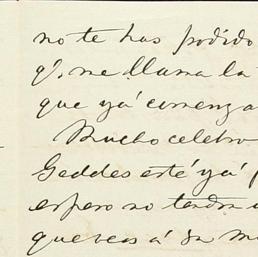 no te has podido
q'. me llama la
que yá comenza
Mucho celebro
Geddes esté yá
espero no tendra
que veas á su